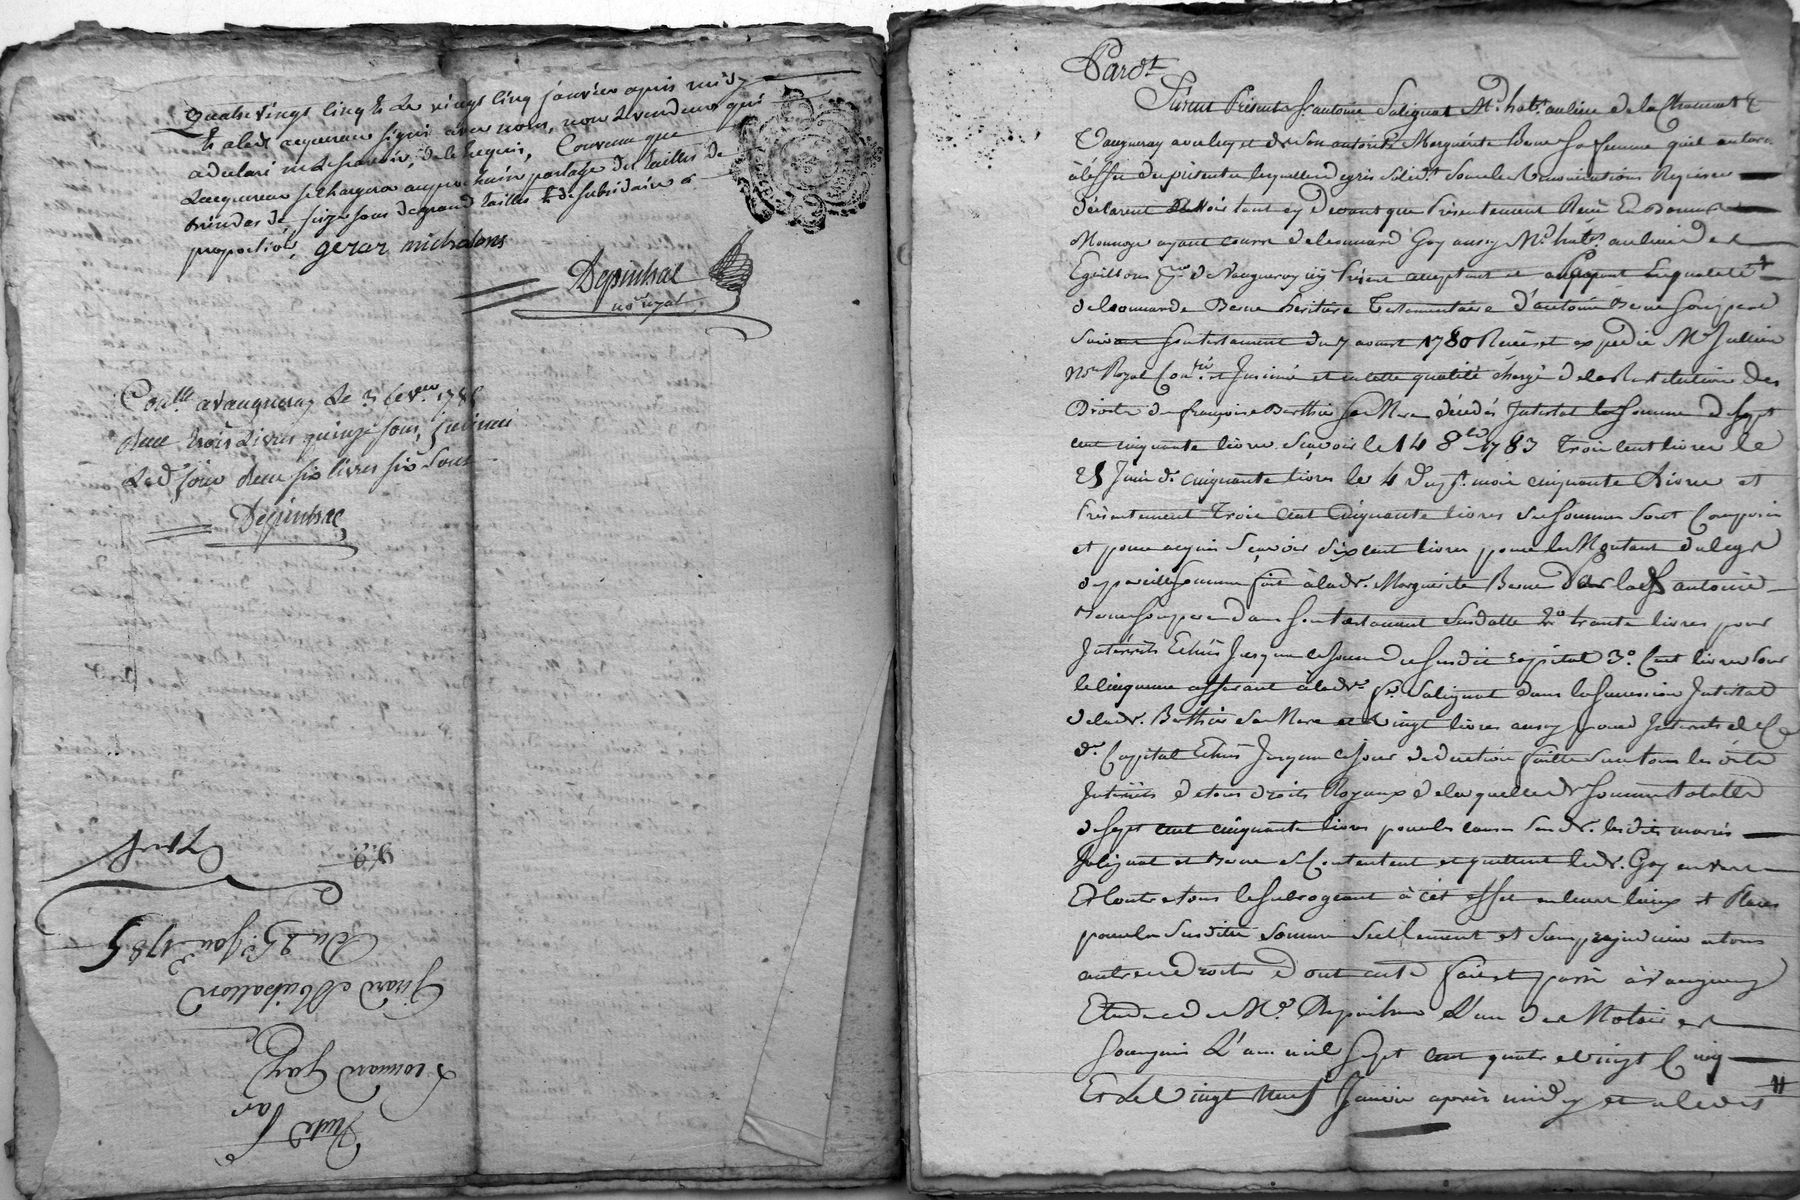 quatre vingt cinq & le vingt cinq janvier apres midy
& a led. acquereur signé avec nous, non le vendeur qui
a declaré ne le scavoir, de ce requis, Convenu que
l'acquereur se chargera au prochain partage des tailles de
seize sous de grand tailles & de subsidaire a
proportion, gerar michalons
Depinhac
no.re royal
Con.lle a vaugneray le 3 fev.er 1785
deux trois livres quinze sous, insinué
led. jour deux six livres six sous
Depinhac
Vente
Par
Leonnard Gay
Girard Michallon
Du 25e Jan 1785
Pard.t
Furent Présents S. antoine Salignat M.d hab.t au lieu de la
Vaugneray avec luy et de son autorité Marguerite Berne sa femme qu'il autorise
à l'effet du présent lesquelles de gré solid.t sous les renonciations Requises
déclarent avoir tant cy devant que présentement Reçu En Bonne
Monnoye ayant cours de Leonnard Gay aussy M.d hab.t au lieu des
Eguillons de Vaugneray icy présent acceptant et en qualité
de Leonnarde Berne héritiere Testamentaire d'antoine Berne son pere
suivant son testament du 7 aoust 1780 Reçu et expédié M.e Jullien
No.re Royal Con.llé et Insinué et en cette qualité chargé de la Restitution des
Droits de françoise Barthie sa Mere décédée Intestat la somme de Sept
cent cinquante livres scavoir le 14 8.bre 1783 Trois cent livres le
25 Juin d. cinquante livres le 4 du p.nt mois cinquante livres et
présentement Trois cent cinquante livres les sommes sont Composées
et pour acquis scavoir six cent livres pour le Montant du legs
de pareille somme fait à la d. Marguerite Berne par led. S. antoine
Berne son pere dans son testament susdatté 2.o trente livres pour
Intérêts Echus Jusqu'a ce jour du susdit capital 3.o Cent livres pour
le cinquieme afferant à la d.e f.e Salignat dans la succession Intestat
de la d. Barthie sa Mere et vingt livres aussy pour Interets de Ce
d. Capital Echus Jusqu'a ce jour déduction faitte sur tous lesdits
Intérêts de tous droits Royaux de laquelle d. somme totalle
de sept cent cinquante livres pour les causes susd. lesdits mariés
Salignat et Berne se Contentent et quittent led. Gay envers
Et Contre tous le subrogeant à cet effet en leurs lieux et Places
pour la susditte somme seullement et sans préjudicier a tous
autres droits Dont acte fait et passé à vaugneray
Etude de M.e Depinhac l'un des Notaires
soussignés L'an mil sept cent quatre vingt Cinq
Et le vingt neuf Janvier après midy et a ledit